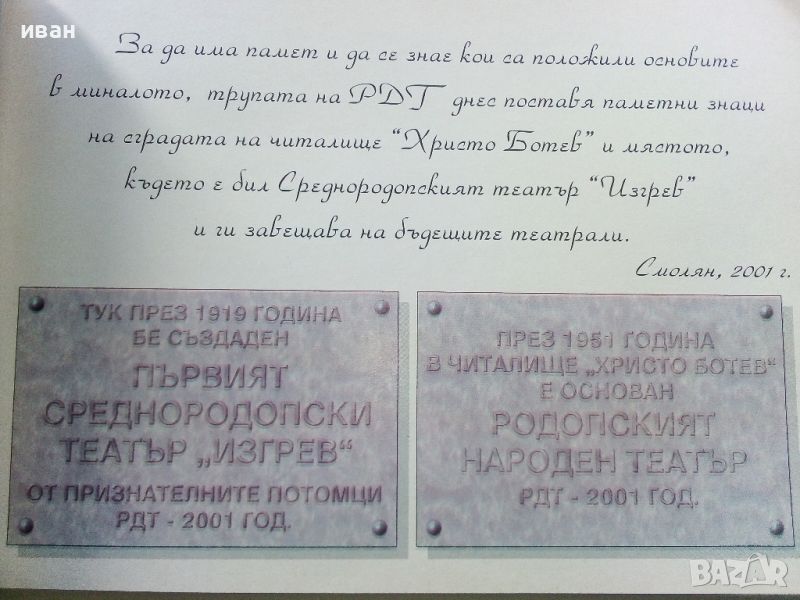 иван
За да има памет и да се знае кои са положили основите
в миналото, трупата на РДТ днес поставя паметни знаци
на сградата на читалище “Христо Ботев” и мястото,
където е бил Среднородопският театър “Изгрев”
и ги завещава на бъдещите театрали.
Смолян, 2001 г.
ТУК ПРЕЗ 1919 ГОДИНА
БЕ СЪЗДАДЕН
ПЪРВИЯТ
СРЕДНОРОДОПСКИ
ТЕАТЪР „ИЗГРЕВ“
ОТ ПРИЗНАТЕЛНИТЕ ПОТОМЦИ
РДТ - 2001 ГОД.
ПРЕЗ 1951 ГОДИНА
В ЧИТАЛИЩЕ „ХРИСТО БОТЕВ“
Е ОСНОВАН
РОДОПСКИЯТ
НАРОДЕН ТЕАТЪР
РДТ - 2001 ГОД.
BAZAR